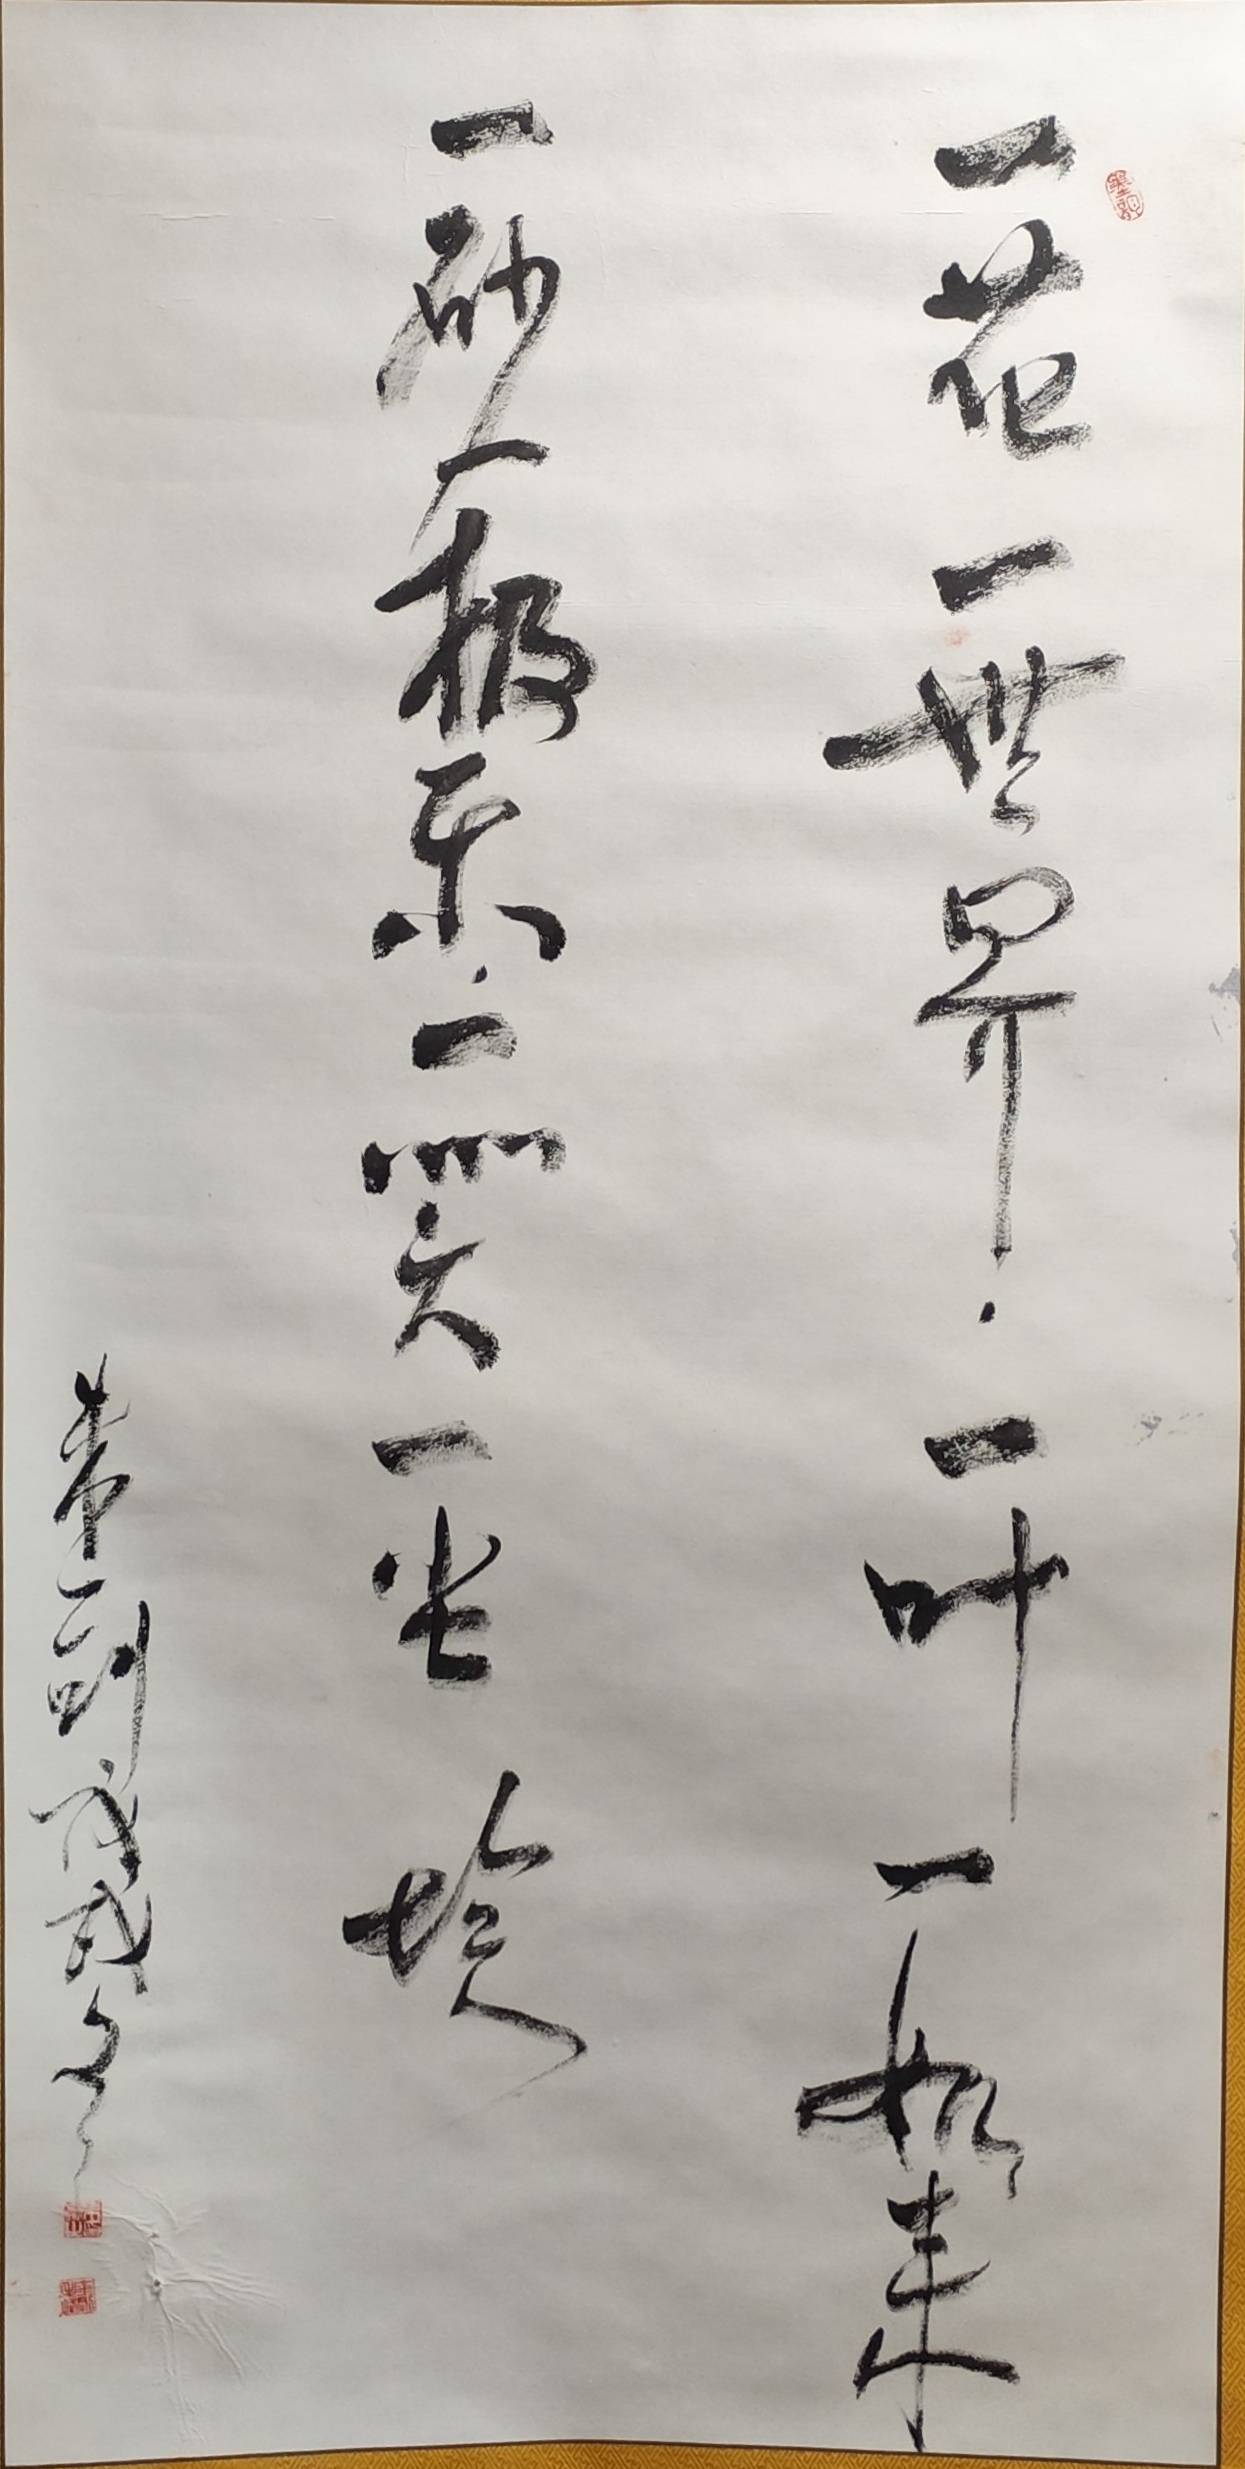 一花一世界·一叶一如来
一砂一极乐·一笑一尘埃
戊戌冬